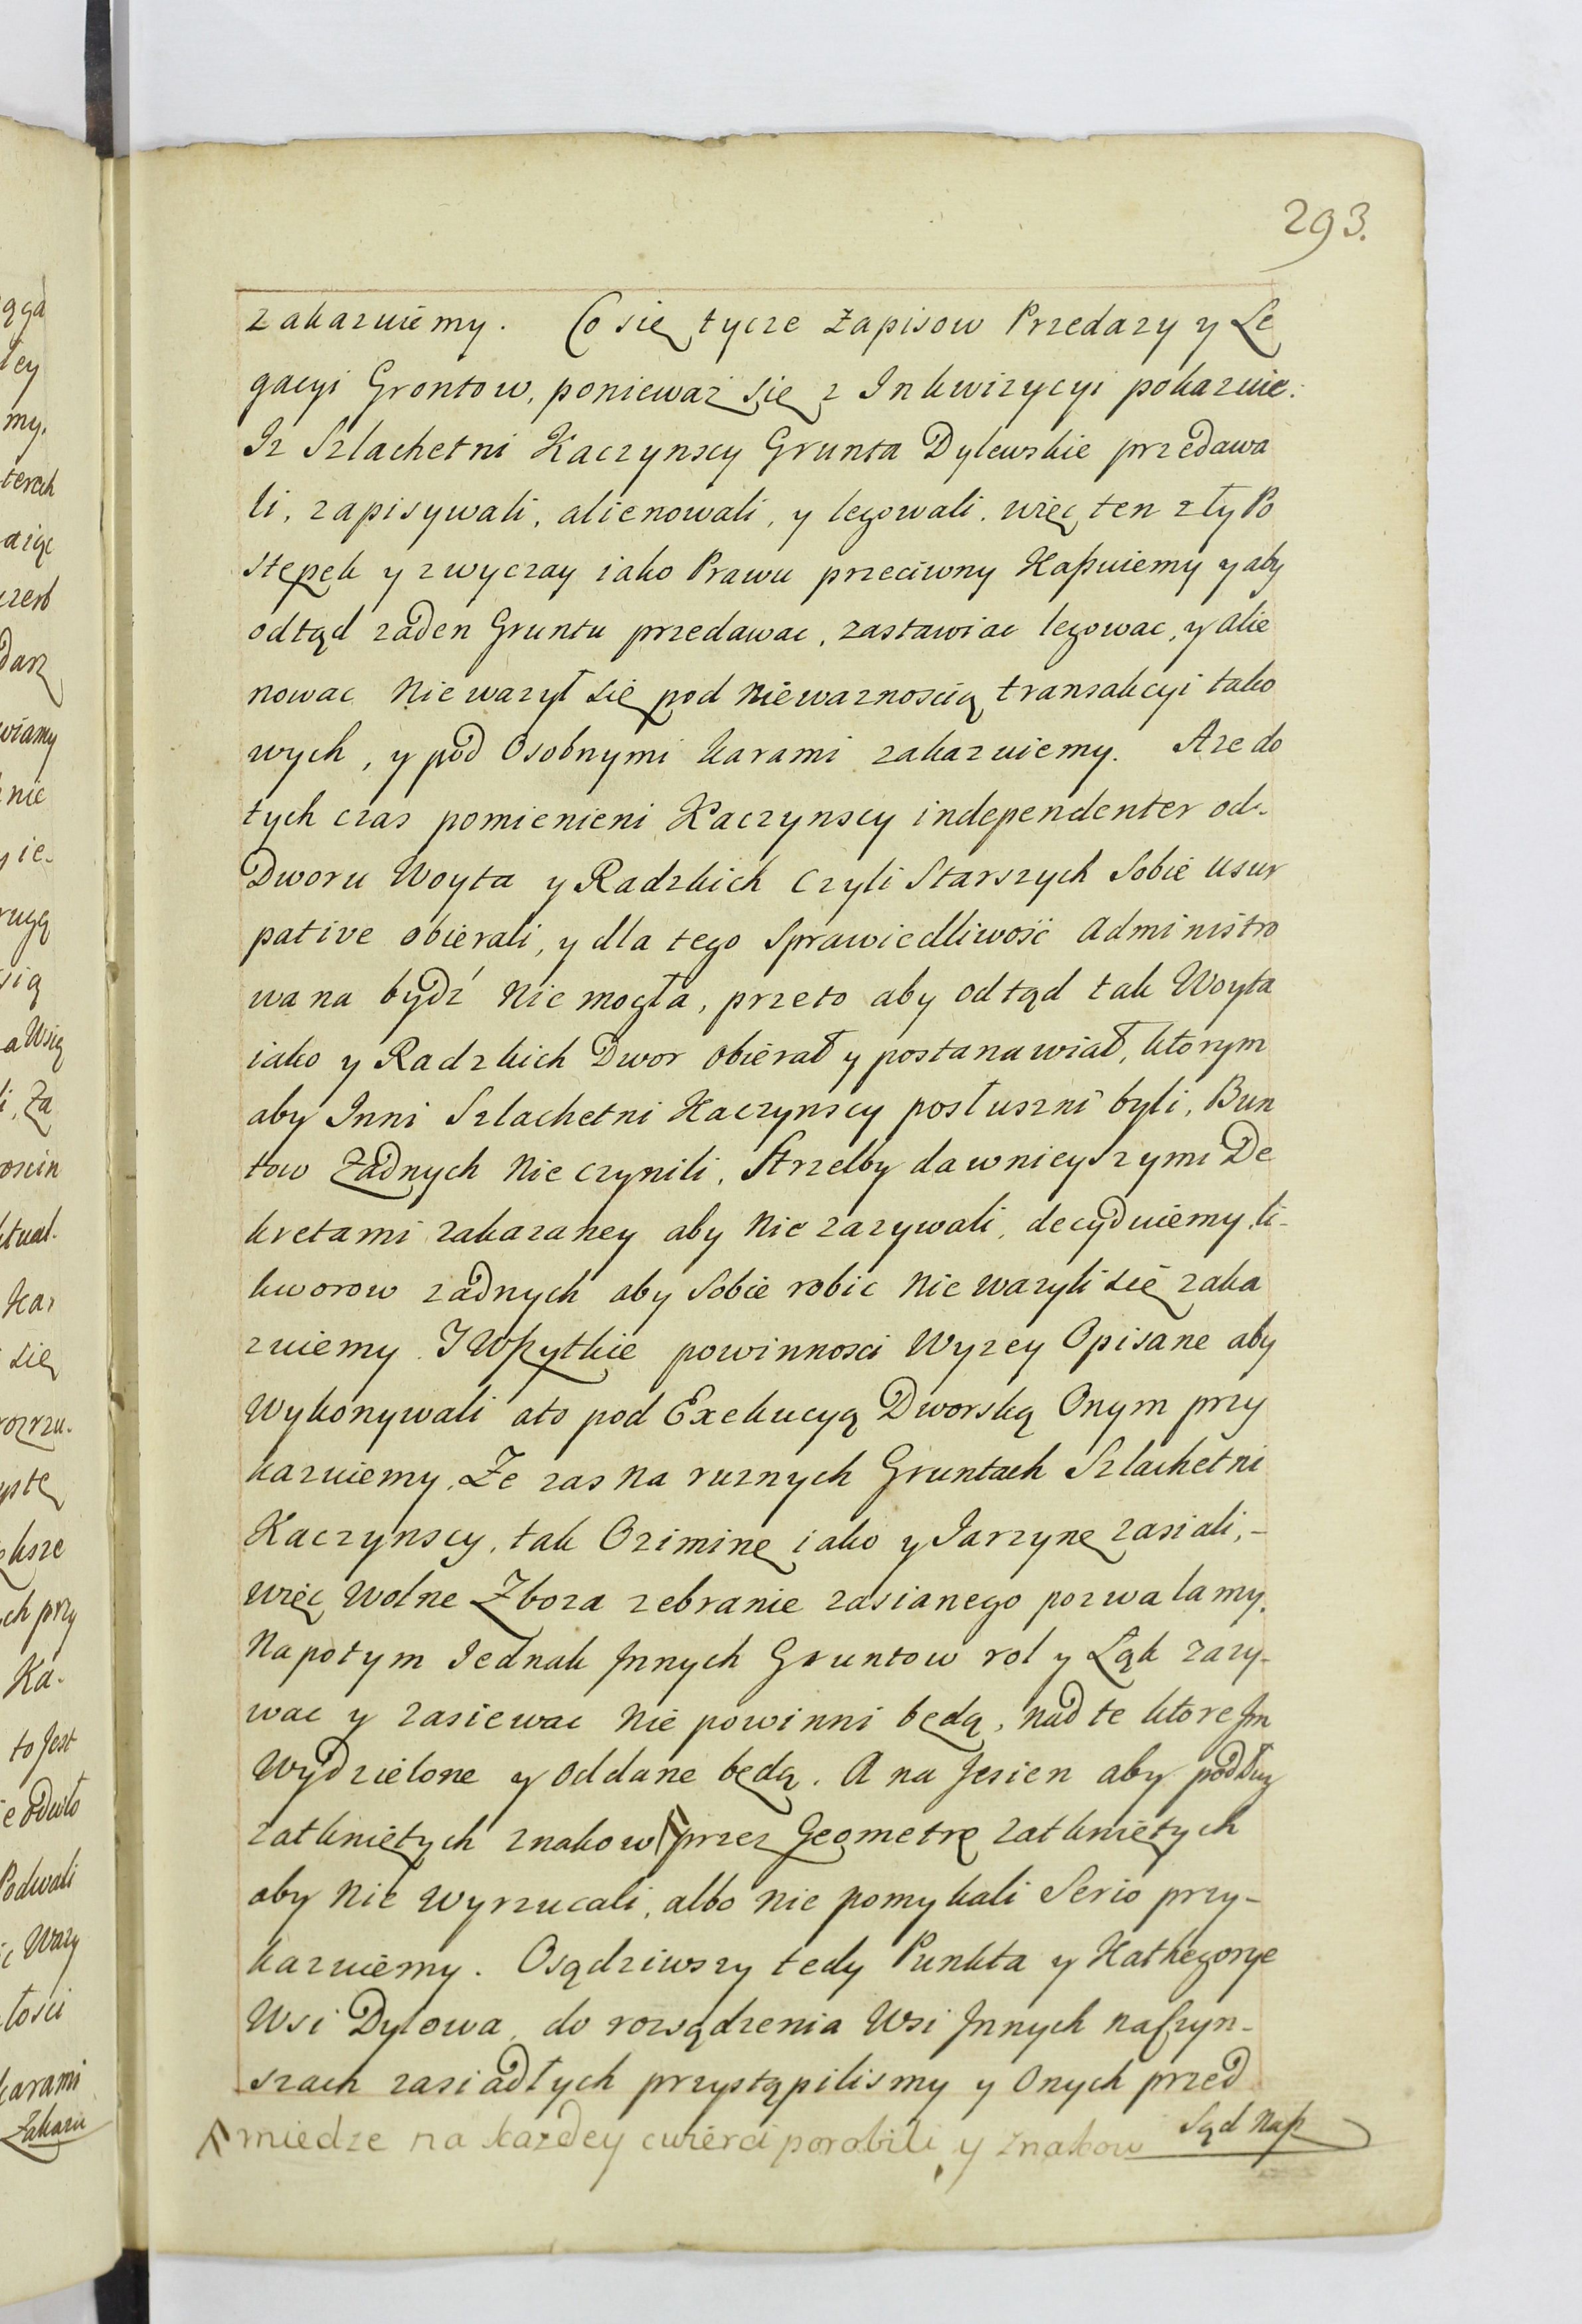 293.
zakazuiemy. Co się tycze Zapisow Przedazy y Le
gacyi Grontow, ponieważ się z Inkwizycyi pokazuie.
Iz Szlachetni Kaczynscy Grunta Dylewskie przedawa
li, zapisywali, alienowali, y legowali, więc ten zły Po
stępek y zwyczay iako Prawu przeciwny Kaßuiemy y aby
odtąd zaden Gruntu przedawac, zastawiac legowac, y alie
nowac nie wazył się pod niewaznoscią transakcyi tako
wych, y pod Osobnymi karami zakazuiemy. Aze do
tych czas pomienieni Kaczynscy independenter od
Dworu Woyta y Radzkich Czyli Starszych Sobie usur
pative obierali, y dla tego Sprawiedliwość Administro
wana bydź nie mogła, przeto aby odtąd tak Woyta
iako y Radzkich Dwor obierał y postanawiał, ktorym
aby Inni Szlachetni Kaczynscy posłuszni byli, Bun
tow Żadnych nie czynili, Strzelby dawnieyszymi De
kretami zakazaney aby nie zazywali, decyduiemy, li-
kworow zadnych aby Sobie robic nie wazyli się zaka
zuiemy. I Wßytkie powinnosci Wyzey Opisane aby
Wykonywali ato pod Exekucyą Dworską Onym przy
kazuiemy. Ze zas na ruznych Gruntach Szlachetni
Kaczynscy, tak Oziminę iako y Jarzynę zasiali, -
więc Wolne Zboza zebranie zasianego pozwalamy.
Napotym Jednak Innych Gruntow rol y Ląk zazy-
wac y zasiewac nie powinni będą, nad te ktore Im
Wydzielone y oddane będą. A na Jesien aby podług
zatkniętych znakow ^ przez Geometrę zatkniętych
aby nie wyrzucali, albo nie pomykali Serio przy-
kazuiemy. Osądziwszy tedy Punkta y Kathegorye
Wsi Dylowa, do rozsądzenia Wsi Innych na Czyn-
szach zasiadłych przystąpilismy y Onych przed
Sąd Naß
^ miedze na kazdey cwierci porobili, y znakow